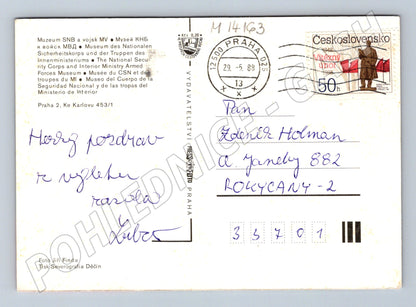 M 14163
Muzeum SNB a vojsk MV • Музей КНБ
и войск МВД • Museum des Nationalen
Sicherheitskorps und der Truppen des
Innenministeriums • The National Secu-
rity Corps and Interior Ministry Armed
Forces Museum • Musée du CSN et des
troupes du MI • Museo del Cuerpo de la
Seguridad Nacional y de las tropas del
Ministerio de Interior
Praha 2, Ke Karlovu 453/1
Hezký pozdrav
z výletu
zasílá
Luboš
Foto Jiří Finda
Tisk Severografia Děčín
VYDAVATELSTVÍ
PRAHA
12500 PRAHA 025
29.-5.89
13
Československo
50h
Pan
Zdeněk Holman
ROKYCANY-2
33701
POHLEDNICE-S